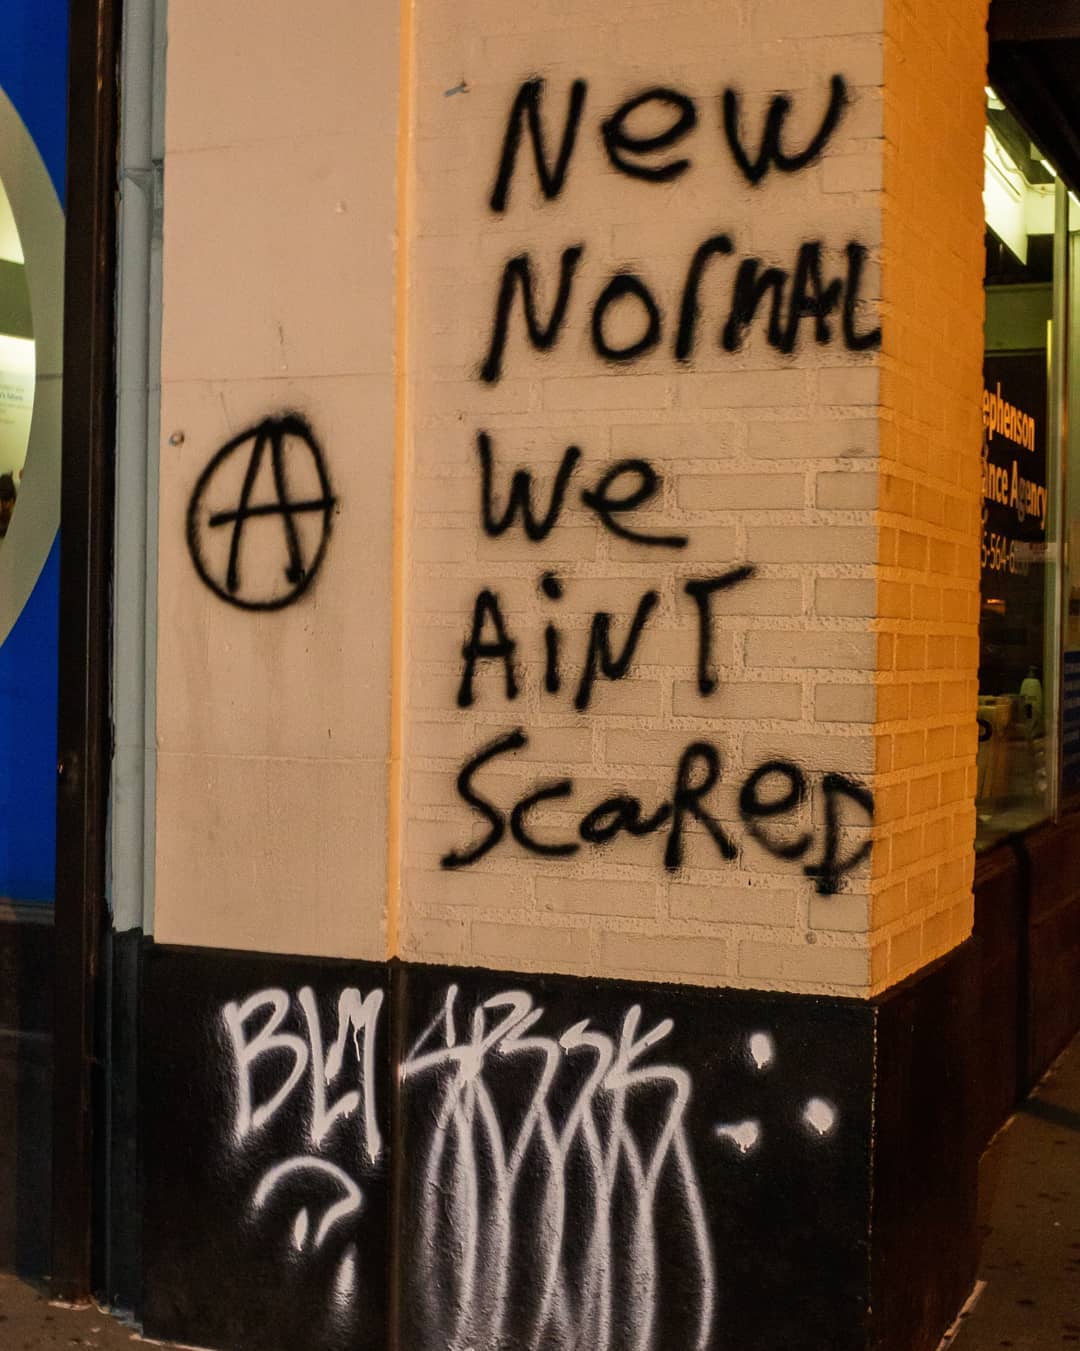 New
Normal
We
AiNT
ScaReD
A
BLM
ephenson
nce Agency
5-564-6